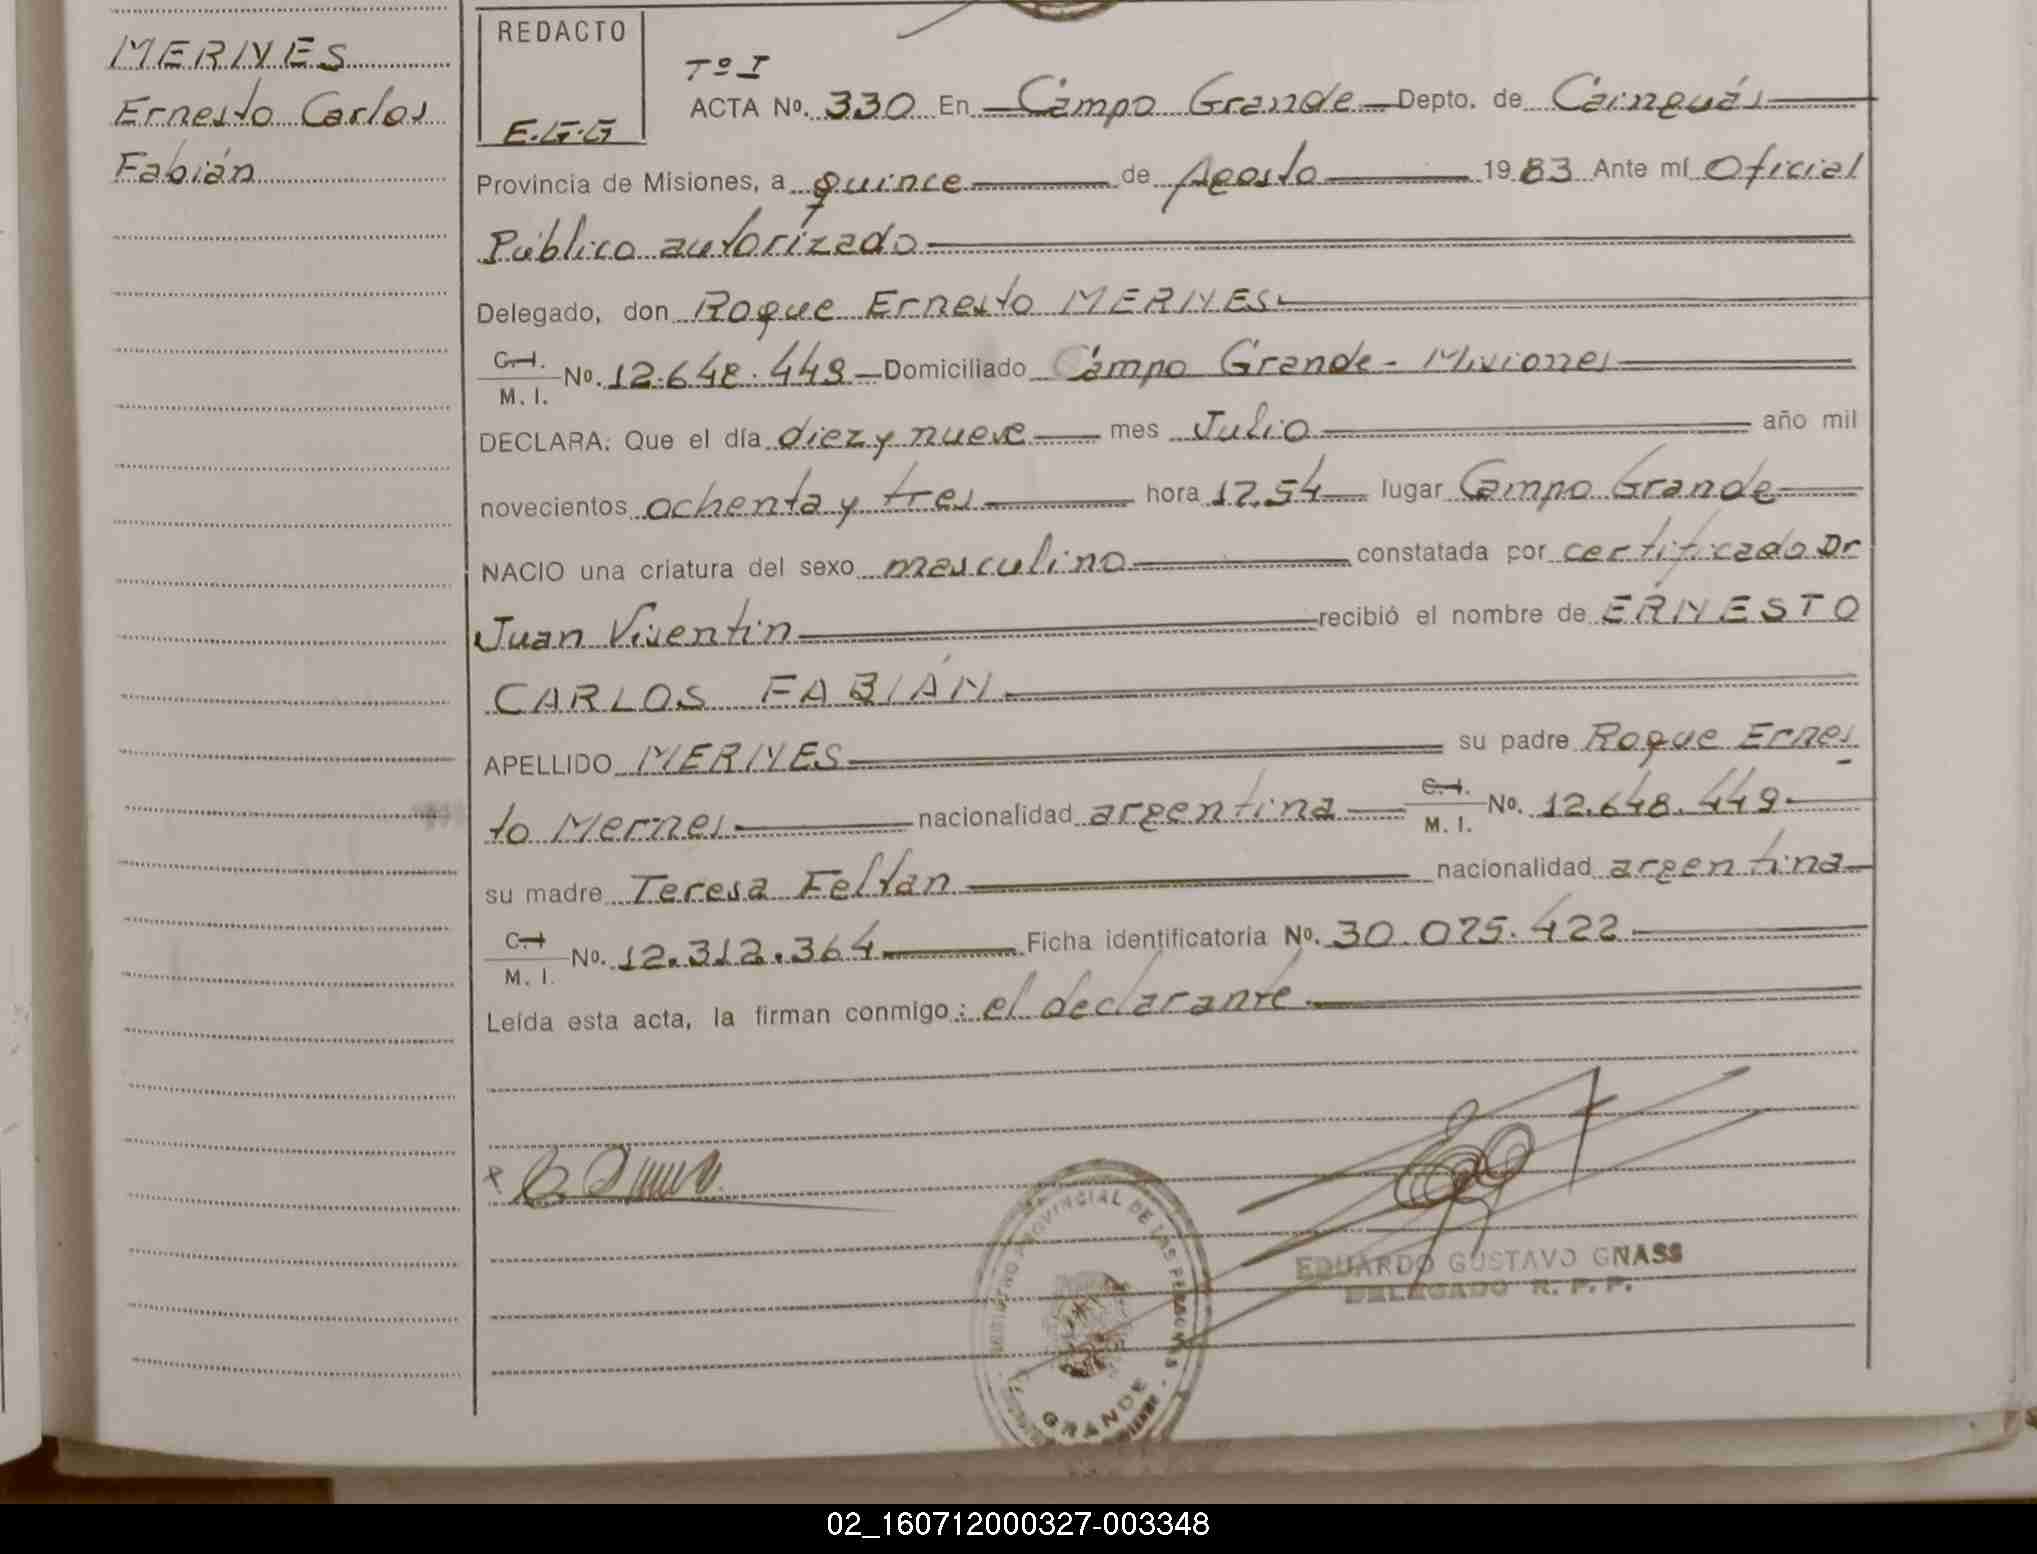 MERNES
Ernesto Carlos
Fabián
REDACTO
E.G.G
Tº I
ACTA Nº. 330 En Campo Grande Depto. de Cainguás
Provincia de Misiones, a quince de Agosto 1983 Ante mí Oficial
Público autorizado
Delegado, don Roque Ernesto MERNES
C.I. M.I. Nº. 12.648.449 Domiciliado Campo Grande - Misiones
DECLARA: Que el día diez y nueve mes Julio año mil
novecientos ochenta y tres hora 12.54 lugar Campo Grande
NACIO una criatura del sexo masculino constatada por certificado Dr
Juan Visentin recibió el nombre de ERNESTO
CARLOS FABIÁN
APELLIDO MERNES su padre Roque Ernes
to Mernes nacionalidad argentina C.I. M.I. Nº. 12.648.449
su madre Teresa Feltan nacionalidad argentina
C.I M.I. Nº. 12.312.364 Ficha identificatoria Nº. 30.075.422
Leída esta acta, la firman conmigo: el declarante
PROVINCIAL DE LAS PERSONAS
GRANDE
EDUARDO GUSTAVO GNASS
DELEGADO R. P. P.
02_160712000327-003348